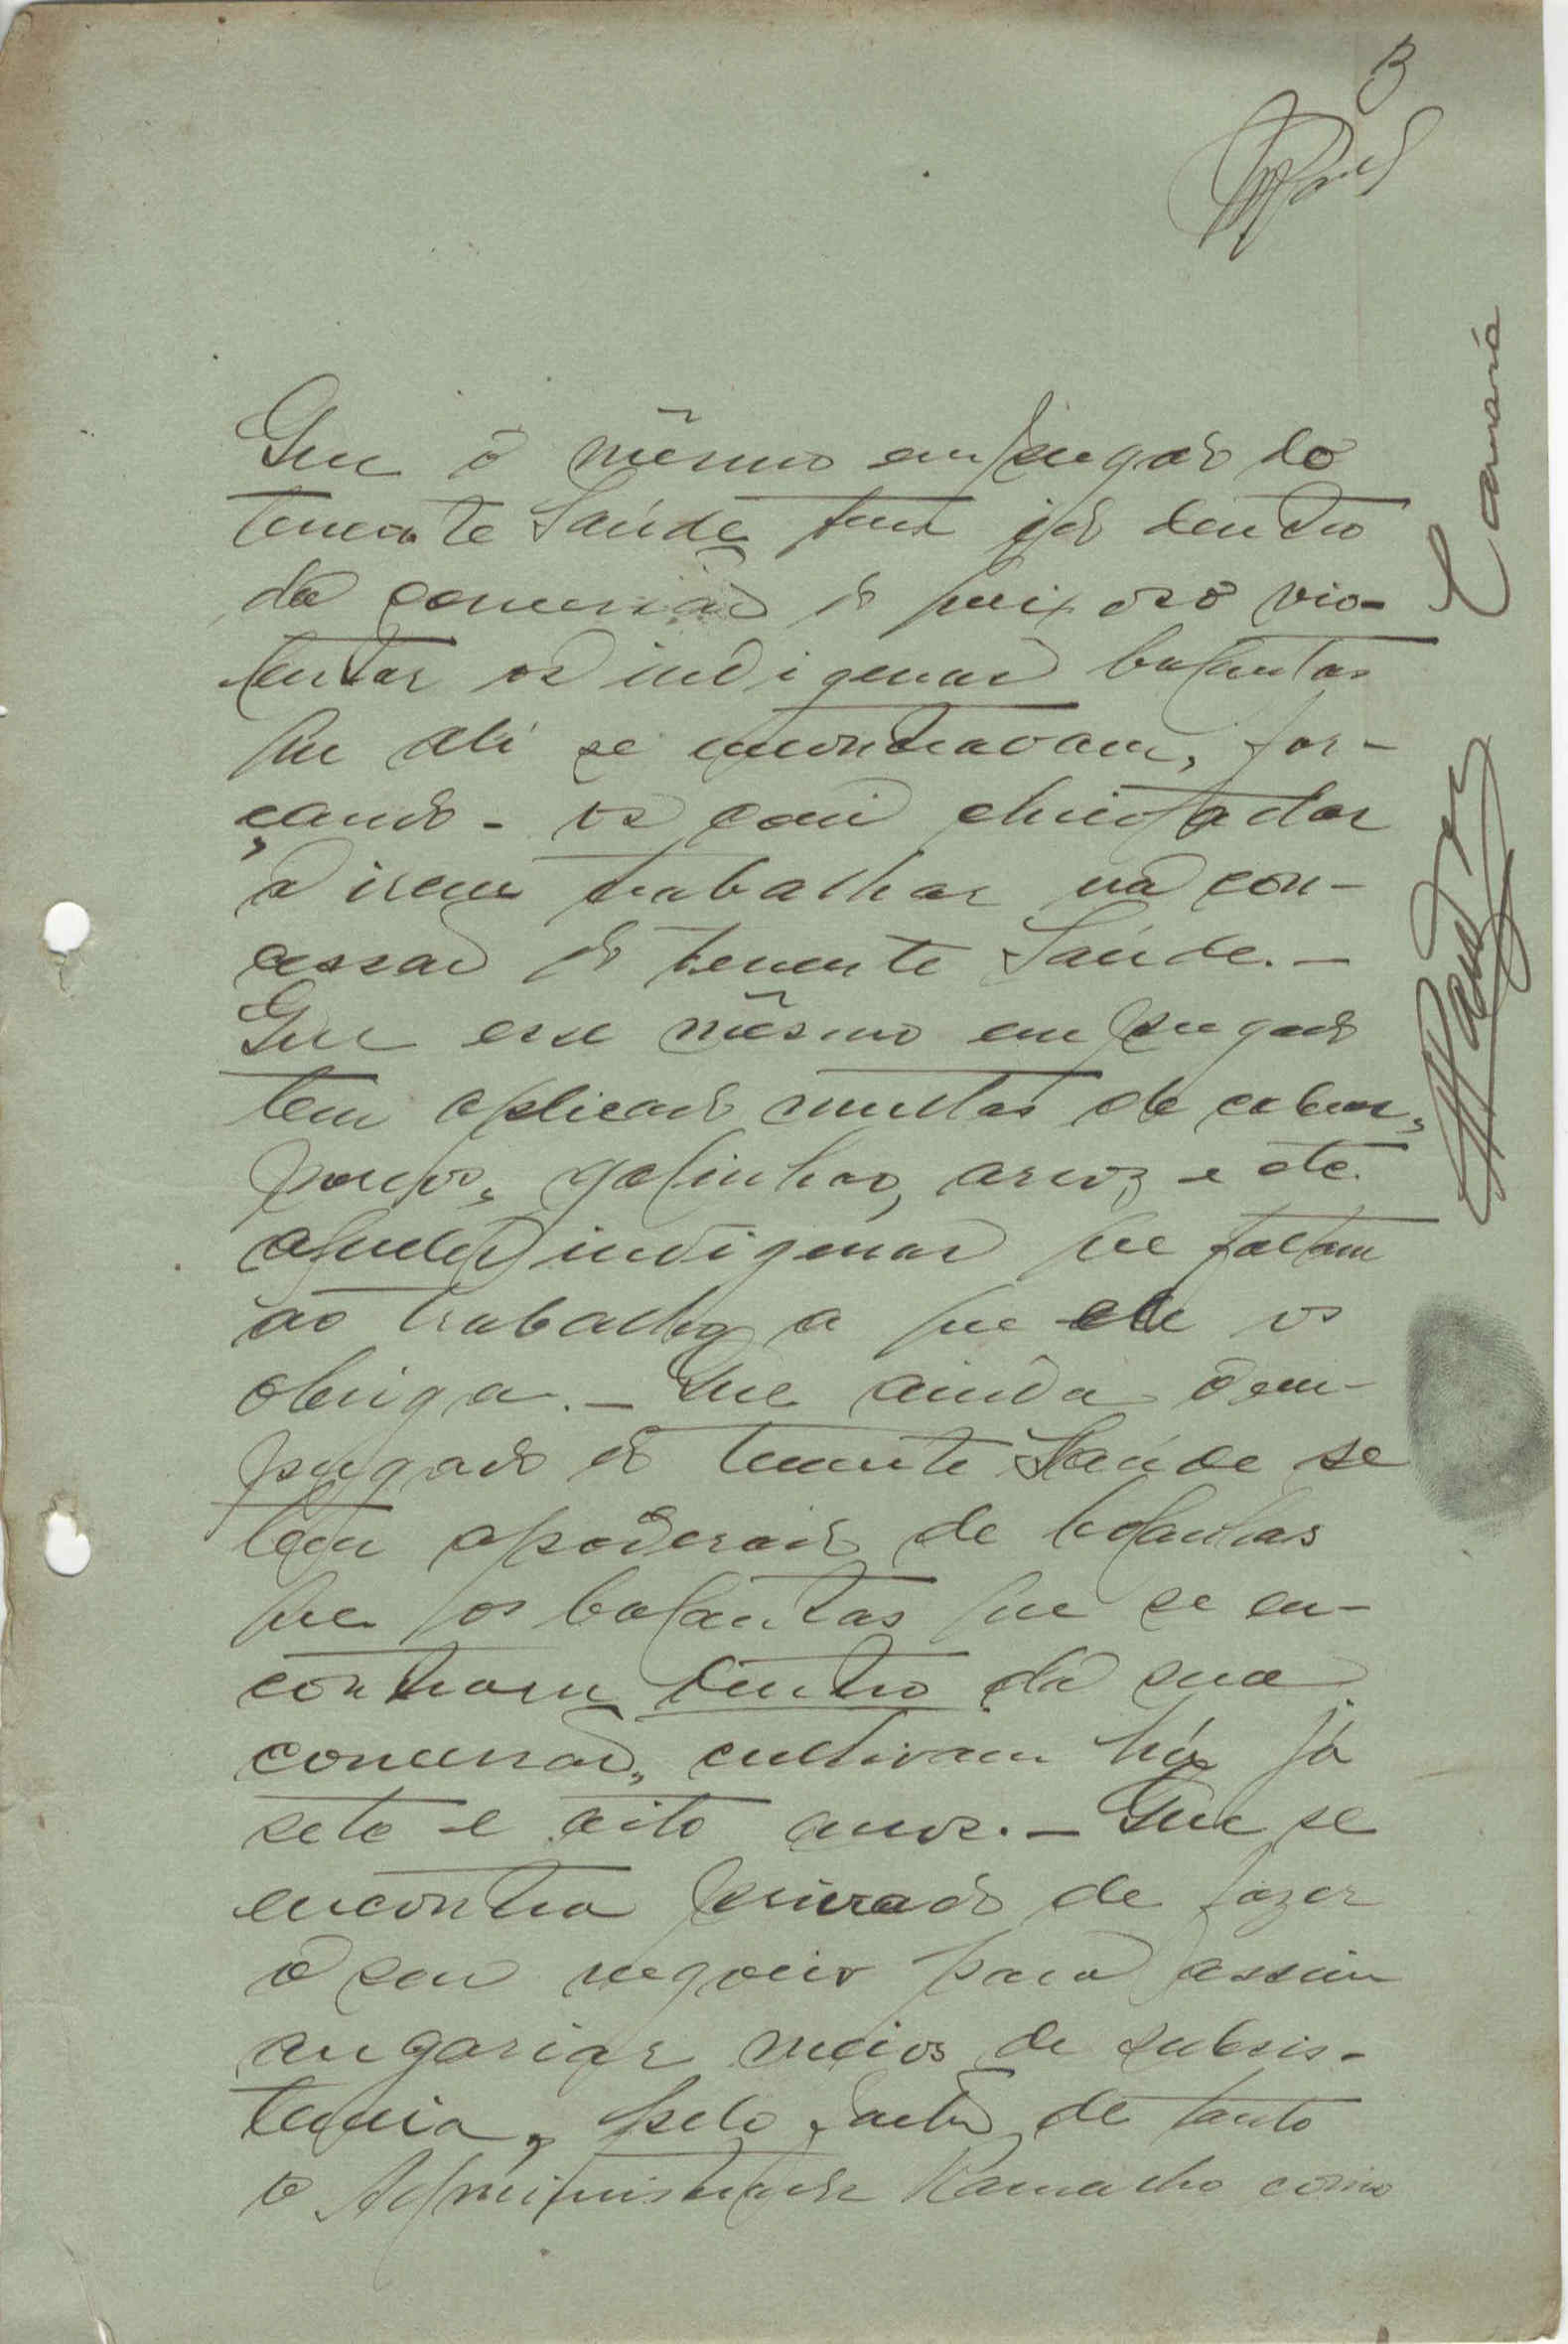 Que o mêsmo empregado do
tenente Saúde tem ido dentro
da concessão do queixoso vio-
lentar os indigenas balantas
que ali se encontravam, for-
çando-os com chicotadas
a irem trabalhar na con-
cessão do tenente Saúde.-
Que esse mêsmo empregado
tem aplicado multas de cabras,
porcos, galinhas, arroz e etc.
aqueles indigenas que faltam
ao trabalho a que ele os
obriga.- Que ainda o em-
pregado do tenente Saúde se
tem apoderado de bolanhas
que os balantas que se en-
contram dentro da sua
concessão, cultivam há já
sete e oito anos.- Que se
encontra privado de fazer
o seu negocio para assim
angariar meios de subsis-
tencia, pelo facto de tanto
o Administrador Camacho como